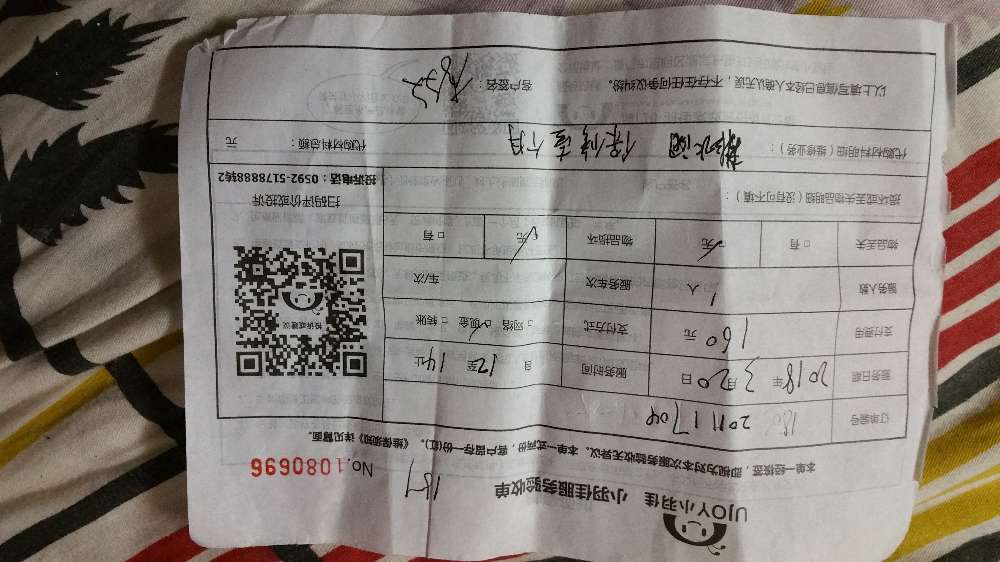 UJOY小羽佳 小羽佳服务验收单 187
No.1080696
本单一经接签，即视为对本次服务验收无异议。本单一式两份，客户留存一份(红)。《维保须知》详见背面。
订单编号 2011704
服务日期 2018年3月20日 服务时间 自12至14止
支付费用 160元 支付方式 □网络 ☑现金 □转账
服务人数 1人 服务车次 车/次
物品丢失 □有 ☑无 物品损坏 ☑无 □有
损坏或丢失物品明细（没有可不填）：
扫码评价或投诉
投诉电话：0592-5178888转2
投诉或建议
代购材料明细（维修业务）： 保修壹个月 代购材料总额： 元
以上填写信息已经本人确认无误，不存在任何争议纠纷。 客户签名：